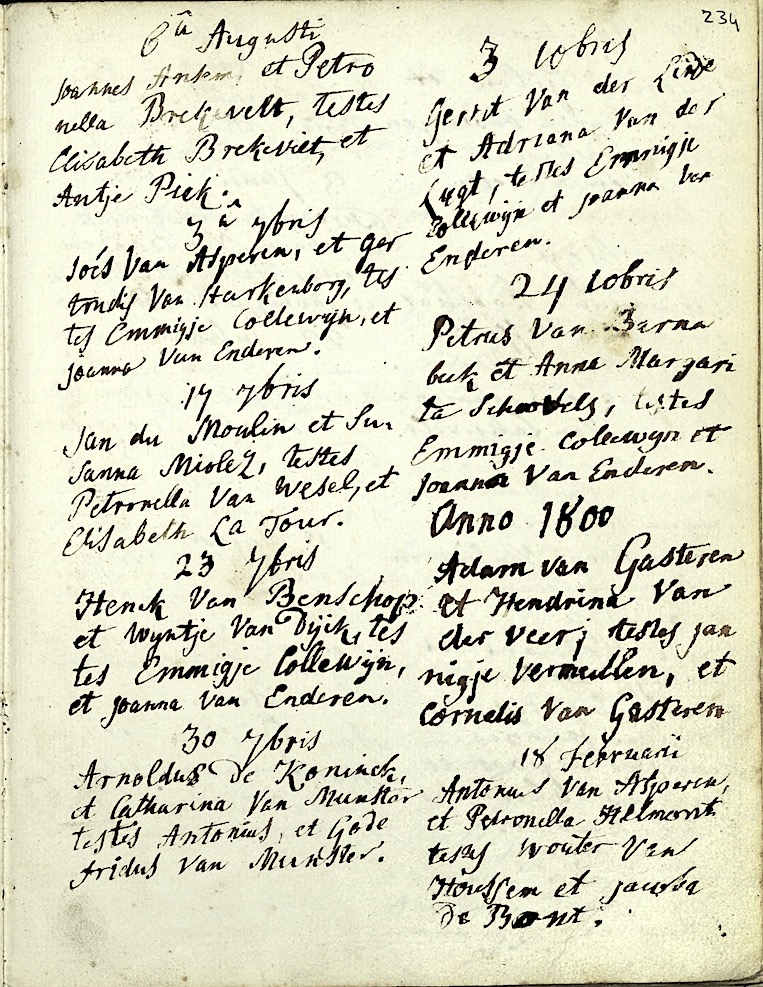 234
6â Augusti
Joannes Ansem, et Petro
nella Brekevelt, testes
Elisabeth Brekeviet, et
Antje Piek.
3â 7bris
Joẽs Van Asperen, et Ger
trudis Van Harkenborg, tes
tes Emmigje Collewyn, et
Joanna Van Enderen.
17 7bris
Jan du Moulin et Su„
sanna Miolez, testes
Petronella Van Wesel, et
Elisabeth La Tour.
23 7bris
Henck Van Benschop
et Wyntje Van Dijik, tes
tes Emmigje Collewijn,
et Joanna Van Enderen.
30 7bris
Arnoldus De Koninck,
et Catharina Van Munster
testes Antonius, et Gode
fridus Van Munster.
3 10bris
Gerrit Van der Linde
et Adriana Van der
Lugt, testes Emmigje
Collewijn et Joanna Van
Enderen.
24 10bris
Petrus Van Barna
bek et Anna Margari
ta Schoovels, testes
Emmigje Collewyn et
Joanna Van Enderen.
Anno 1800
Adam van Gasteren
et Hendrina Van
der Veer; testes Jan
nigje Vermeullen, et
Cornelis Van Gasteren
18 Februarii
Antonius Van Asperen,
et Petronella Helmont
testes Wouter Van
Houssem et Jacoba
De Bont.